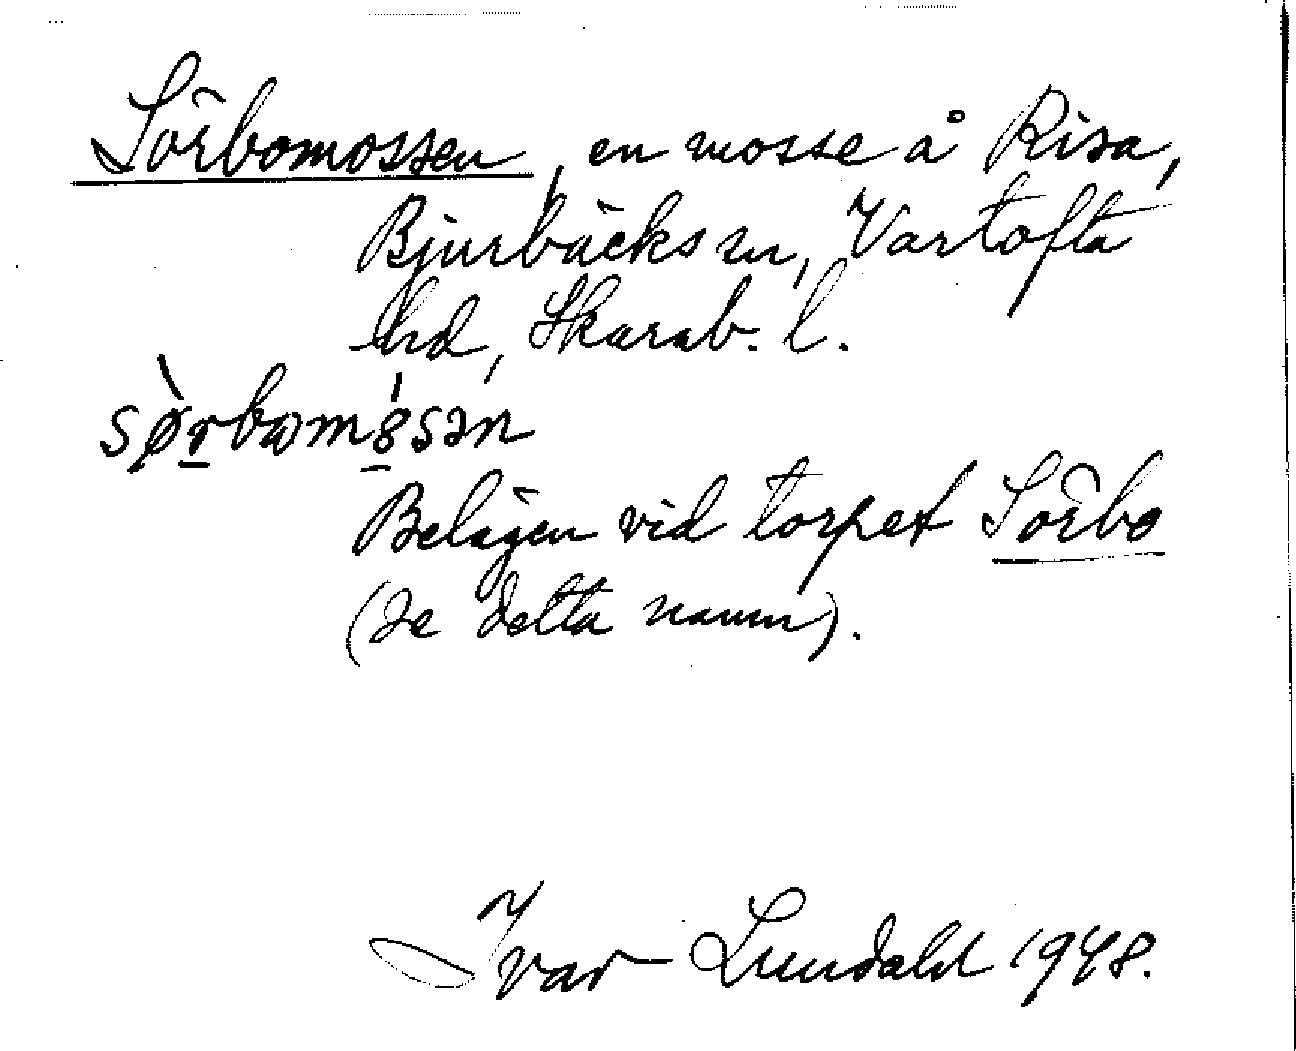 Sörbomossen, en mosse å Risa,
Bjurbäcks sn, Vartofta
hd, Skarab. l.
sørbωmȯsən
Belägen vid torpet Sörbo
(se detta namn).
Ivar Lundahl 1948.